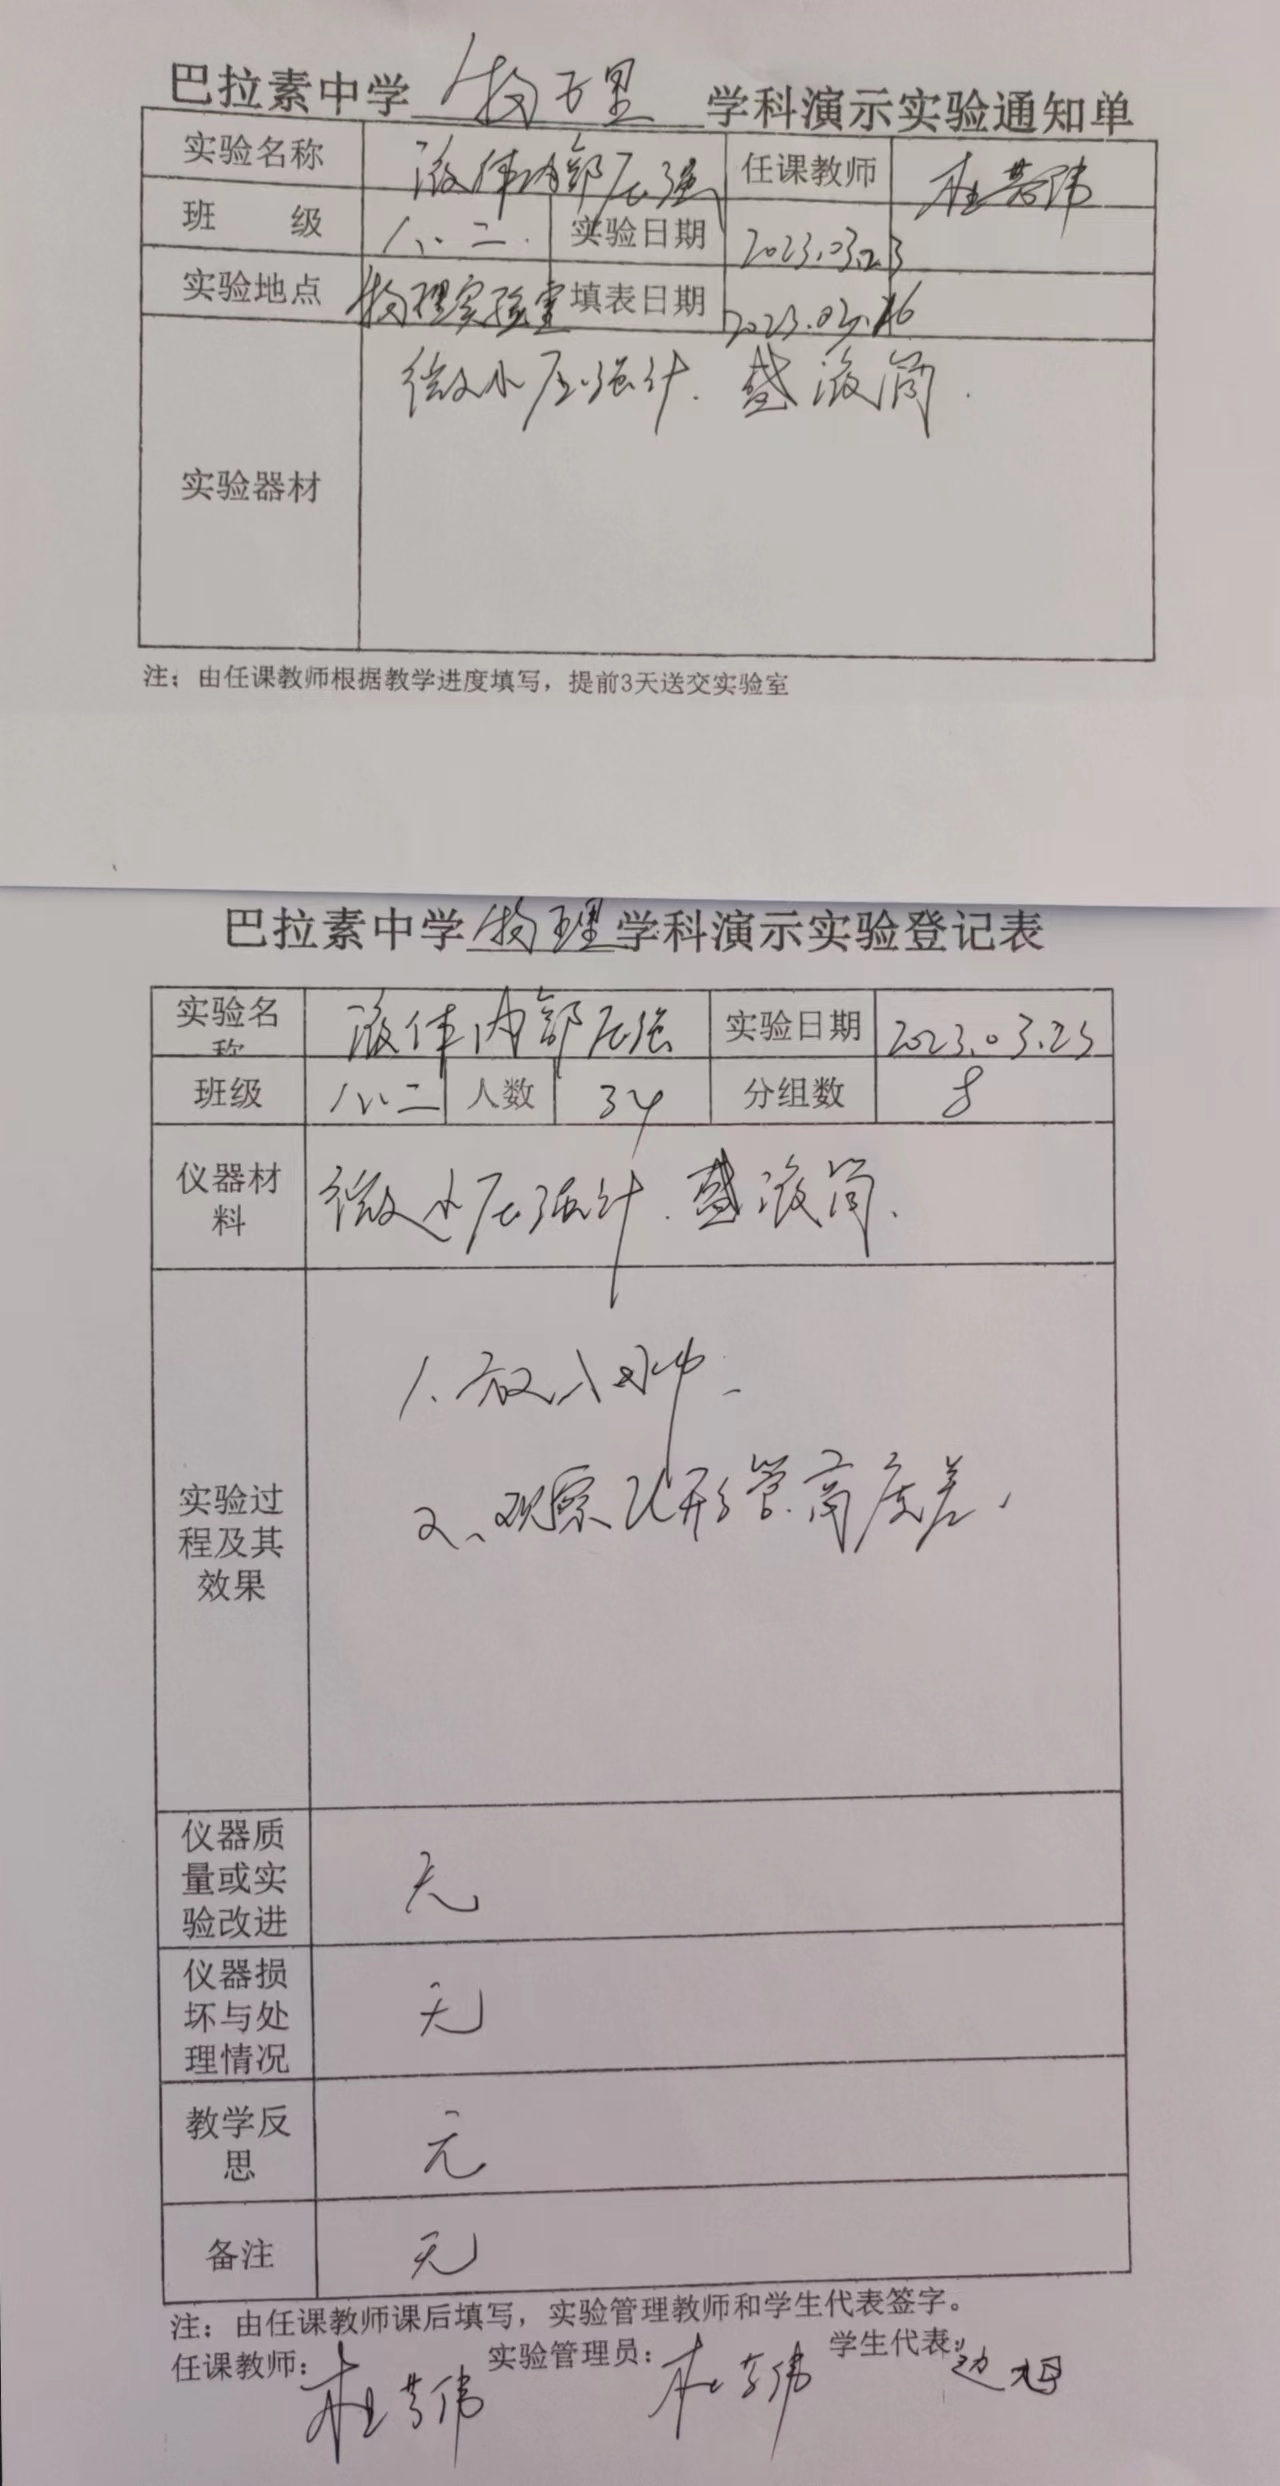 巴拉素中学 物理 学科演示实验通知单
实验名称 液体内部压强 任课教师 杜芸伟
班 级 八.二. 实验日期 2023.03.23
实验地点 物理实验室 填表日期 2023.03.16
实验器材 微小压强计. 盛液筒.
注：由任课教师根据教学进度填写，提前3天送交实验室
巴拉素中学物理学科演示实验登记表
实验名称 液体内部压强 实验日期 2023.03.23
班级 八.二 人数 34 分组数 8
仪器材料 微小压强计. 盛液筒.
实验过程及其效果
1. 放入水中.
2、观察U形管高度差.
仪器质量或实验改进 无
仪器损坏与处理情况 无
教学反思 无
备注 无
注：由任课教师课后填写，实验管理教师和学生代表签字。
任课教师：杜芸伟 实验管理员：杜芸伟 学生代表：边旭